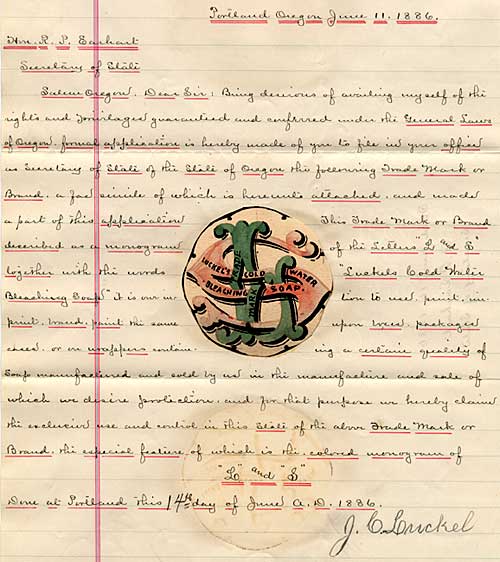 Portland Oregon June 11. 1886.
Hon. R. P. Earhart
Secretary of State
Salem Oregon. Dear Sir: Being desirous of availing myself of the
rights and priviledges guaranteed and conferred under the General Laws
of Oregon, formal application is hereby made of you to file in your office
as Secretary of State of the State of Oregon the following Trade Mark or
Brand, a fac simile of which is hereunto attached, and made
a part of this application This Trade Mark or Brand
described as a monogram of the Letters "L and S"
together with the words "Luckels Cold Water
Bleaching Soap" it is our in tion to use, print, im
print, brand, paint the same upon boxes, packages
cases, or on wrappers contain ing a certain quality of
Soap manufactured and sold by us in the manufacture and sale of
which we desire protection, and for that purpose we hereby claim
the exclusive use and control in this State of the above Trade Mark or
Brand, the especial feature of which is the colored monogram of
"L" and "S"
Done at Portland this 14th day of June A. D. 1886.
J. C. Luckel
LUCKEL'S COLD WATER
BLEACHING SOAP.
TRADE MARK